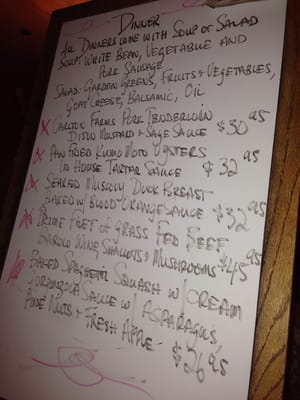 DINNER
ALL DINNERS COME WITH SOUP OR SALAD
SOUP: WHITE BEAN, VEGETABLE AND
PORK SAUSAGE
SALAD: GARDEN GREENS, FRUITS + VEGETABLES,
GOAT CHEESE, BALSAMIC, OIL
X CARLTON FARMS PORK TENDERLOIN
DIJON MUSTARD + SAGE SAUCE $30.95
X PAN FRIED KUMOMOTO OYSTERS
IN HOUSE TARTAR SAUCE $32.95
X SEARED MUSCOVY DUCK BREAST
BAKED W/ BLOOD ORANGE SAUCE $32.95
X PRIME FILET OF GRASS FED BEEF
BAROLO WINE, SHALLOTS + MUSHROOMS $45.95
BAKED SPAGHETTI SQUASH W/ CREAM
GORGONZOLA SAUCE W/ ASPARAGUS,
PINE NUTS + FRESH APPLE $26.95